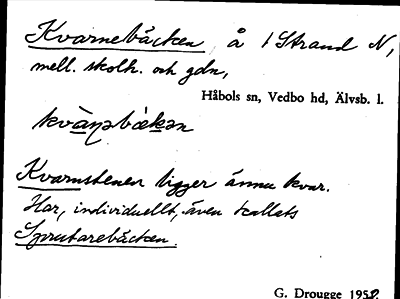 Kvarnebäcken, å i Strand N,
mell. skolh. och gdn,
Håbols sn, Vedbo hd, Älvsb. l.
kvà̱ṇəbèkən
Kvarnstenen ligger ännu kvar.
Har, individuellt, även kallats
Sprutarebäcken.
G. Drougge 1952